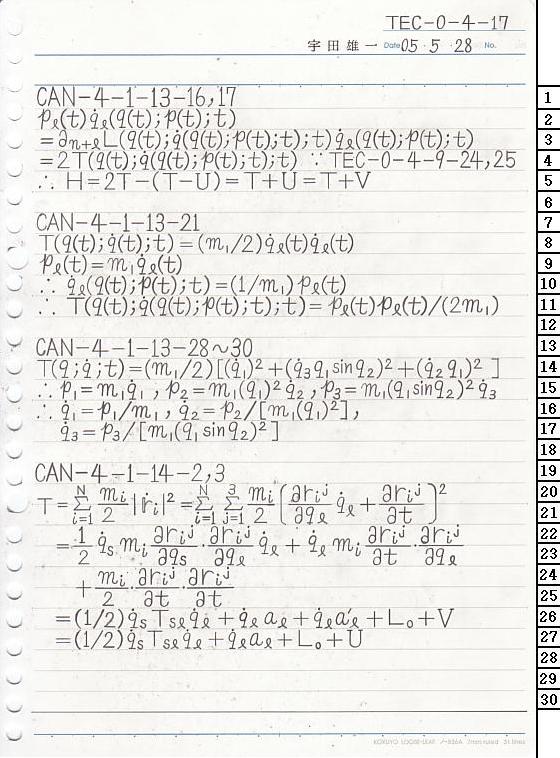 TEC-0-4-17
宇田雄一 Date 05・5・28 No.
CAN-4-1-13-16,17
pℓ(t)q̇ℓ(q(t);p(t);t)
=∂n+ℓL(q(t);q̇(q(t);p(t);t);t)q̇ℓ(q(t);p(t);t)
=2T(q(t);q̇(q(t);p(t);t);t) ∵TEC-0-4-9-24,25
∴ H=2T-(T-U)=T+U=T+V
CAN-4-1-13-21
T(q(t);q̇(t);t)=(m₁/2)q̇ℓ(t)q̇ℓ(t)
pℓ(t)=m₁q̇ℓ(t)
∴ q̇ℓ(q(t);p(t);t)=(1/m₁)pℓ(t)
∴ T(q(t);q̇(q(t);p(t);t);t)=pℓ(t)pℓ(t)/(2m₁)
CAN-4-1-13-28~30
T(q;q̇;t)=(m₁/2)[(q̇₁)²+(q̇₃q₁sinq₂)²+(q̇₂q₁)²]
∴ p₁=m₁q̇₁, p₂=m₁(q₁)²q̇₂, p₃=m₁(q₁sinq₂)²q̇₃
∴ q̇₁=p₁/m₁, q̇₂=p₂/[m₁(q₁)²],
q̇₃=p₃/[m₁(q₁sinq₂)²]
CAN-4-1-14-2,3
T=Σ_{i=1}^{N} mi/2 |ṙi|²=Σ_{i=1}^{N} Σ_{j=1}^{3} mi/2 (∂ri^j/∂qℓ q̇ℓ+∂ri^j/∂t)²
=1/2 q̇s mi ∂ri^j/∂qs・∂ri^j/∂qℓ q̇ℓ + q̇ℓ mi ∂ri^j/∂t・∂ri^j/∂qℓ
+mi/2・∂ri^j/∂t・∂ri^j/∂t
=(1/2)q̇sTsℓq̇ℓ+q̇ℓaℓ+q̇ℓa′ℓ+L₀+V
=(1/2)q̇sTsℓq̇ℓ+q̇ℓaℓ+L₀+U
KOKUYO LOOSE-LEAF ノ-836A 7mm ruled 31 lines
1
2
3
4
5
6
7
8
9
10
11
12
13
14
15
16
17
18
19
20
21
22
23
24
25
26
27
28
29
30